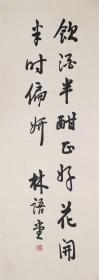 飲酒半酣正好花開
半时偏妍
林語堂